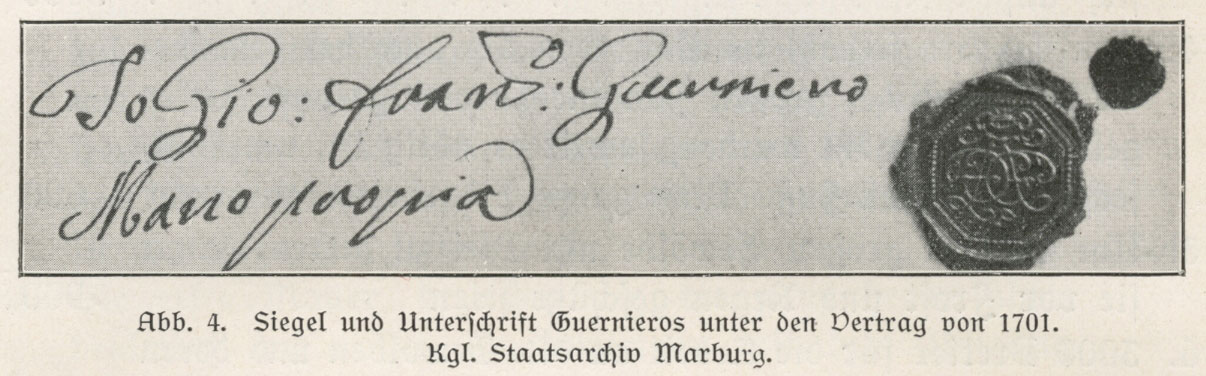 Io Gio: Fran^co: Guerniero
Mano propria
Abb. 4. Siegel und Unterſchrift Guernieros unter den Vertrag von 1701.
Kgl. Staatsarchiv Marburg.